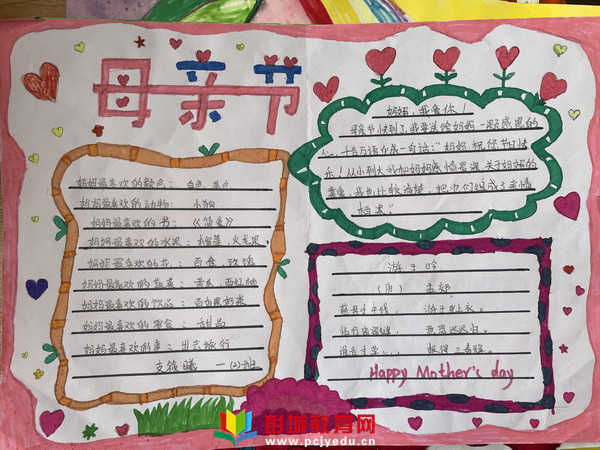 母亲节
妈妈最喜欢的颜色：白色、
妈妈最喜欢的动物：小狗
妈妈最喜欢的书：《简爱》
妈妈最喜欢的水果：榴莲，火龙果，
妈妈最喜欢的花：百合、玫瑰
妈妈最喜欢的蔬菜：黄瓜、西红柿
妈妈最喜欢的饮品：
妈妈最喜欢的零食：甜品
妈妈最喜欢的事：出去旅行
一（2）班
妈妈，我爱你！
母亲节快到了，我要送给妈妈一颗感恩的
心，千言万语化成一句话：“妈妈祝您节日快
乐！从小到大我和妈妈感情最深，关于妈妈的
喜爱，我也比较清楚，把它们组成了亲情
档案。”
游子吟
（唐）孟郊
慈母手中线，游子身上衣。
临行密密缝，意恐迟迟归。
谁言寸草心，报得三春晖。
Happy Mother's day
彭城教育网
www.pcjyedu.cn